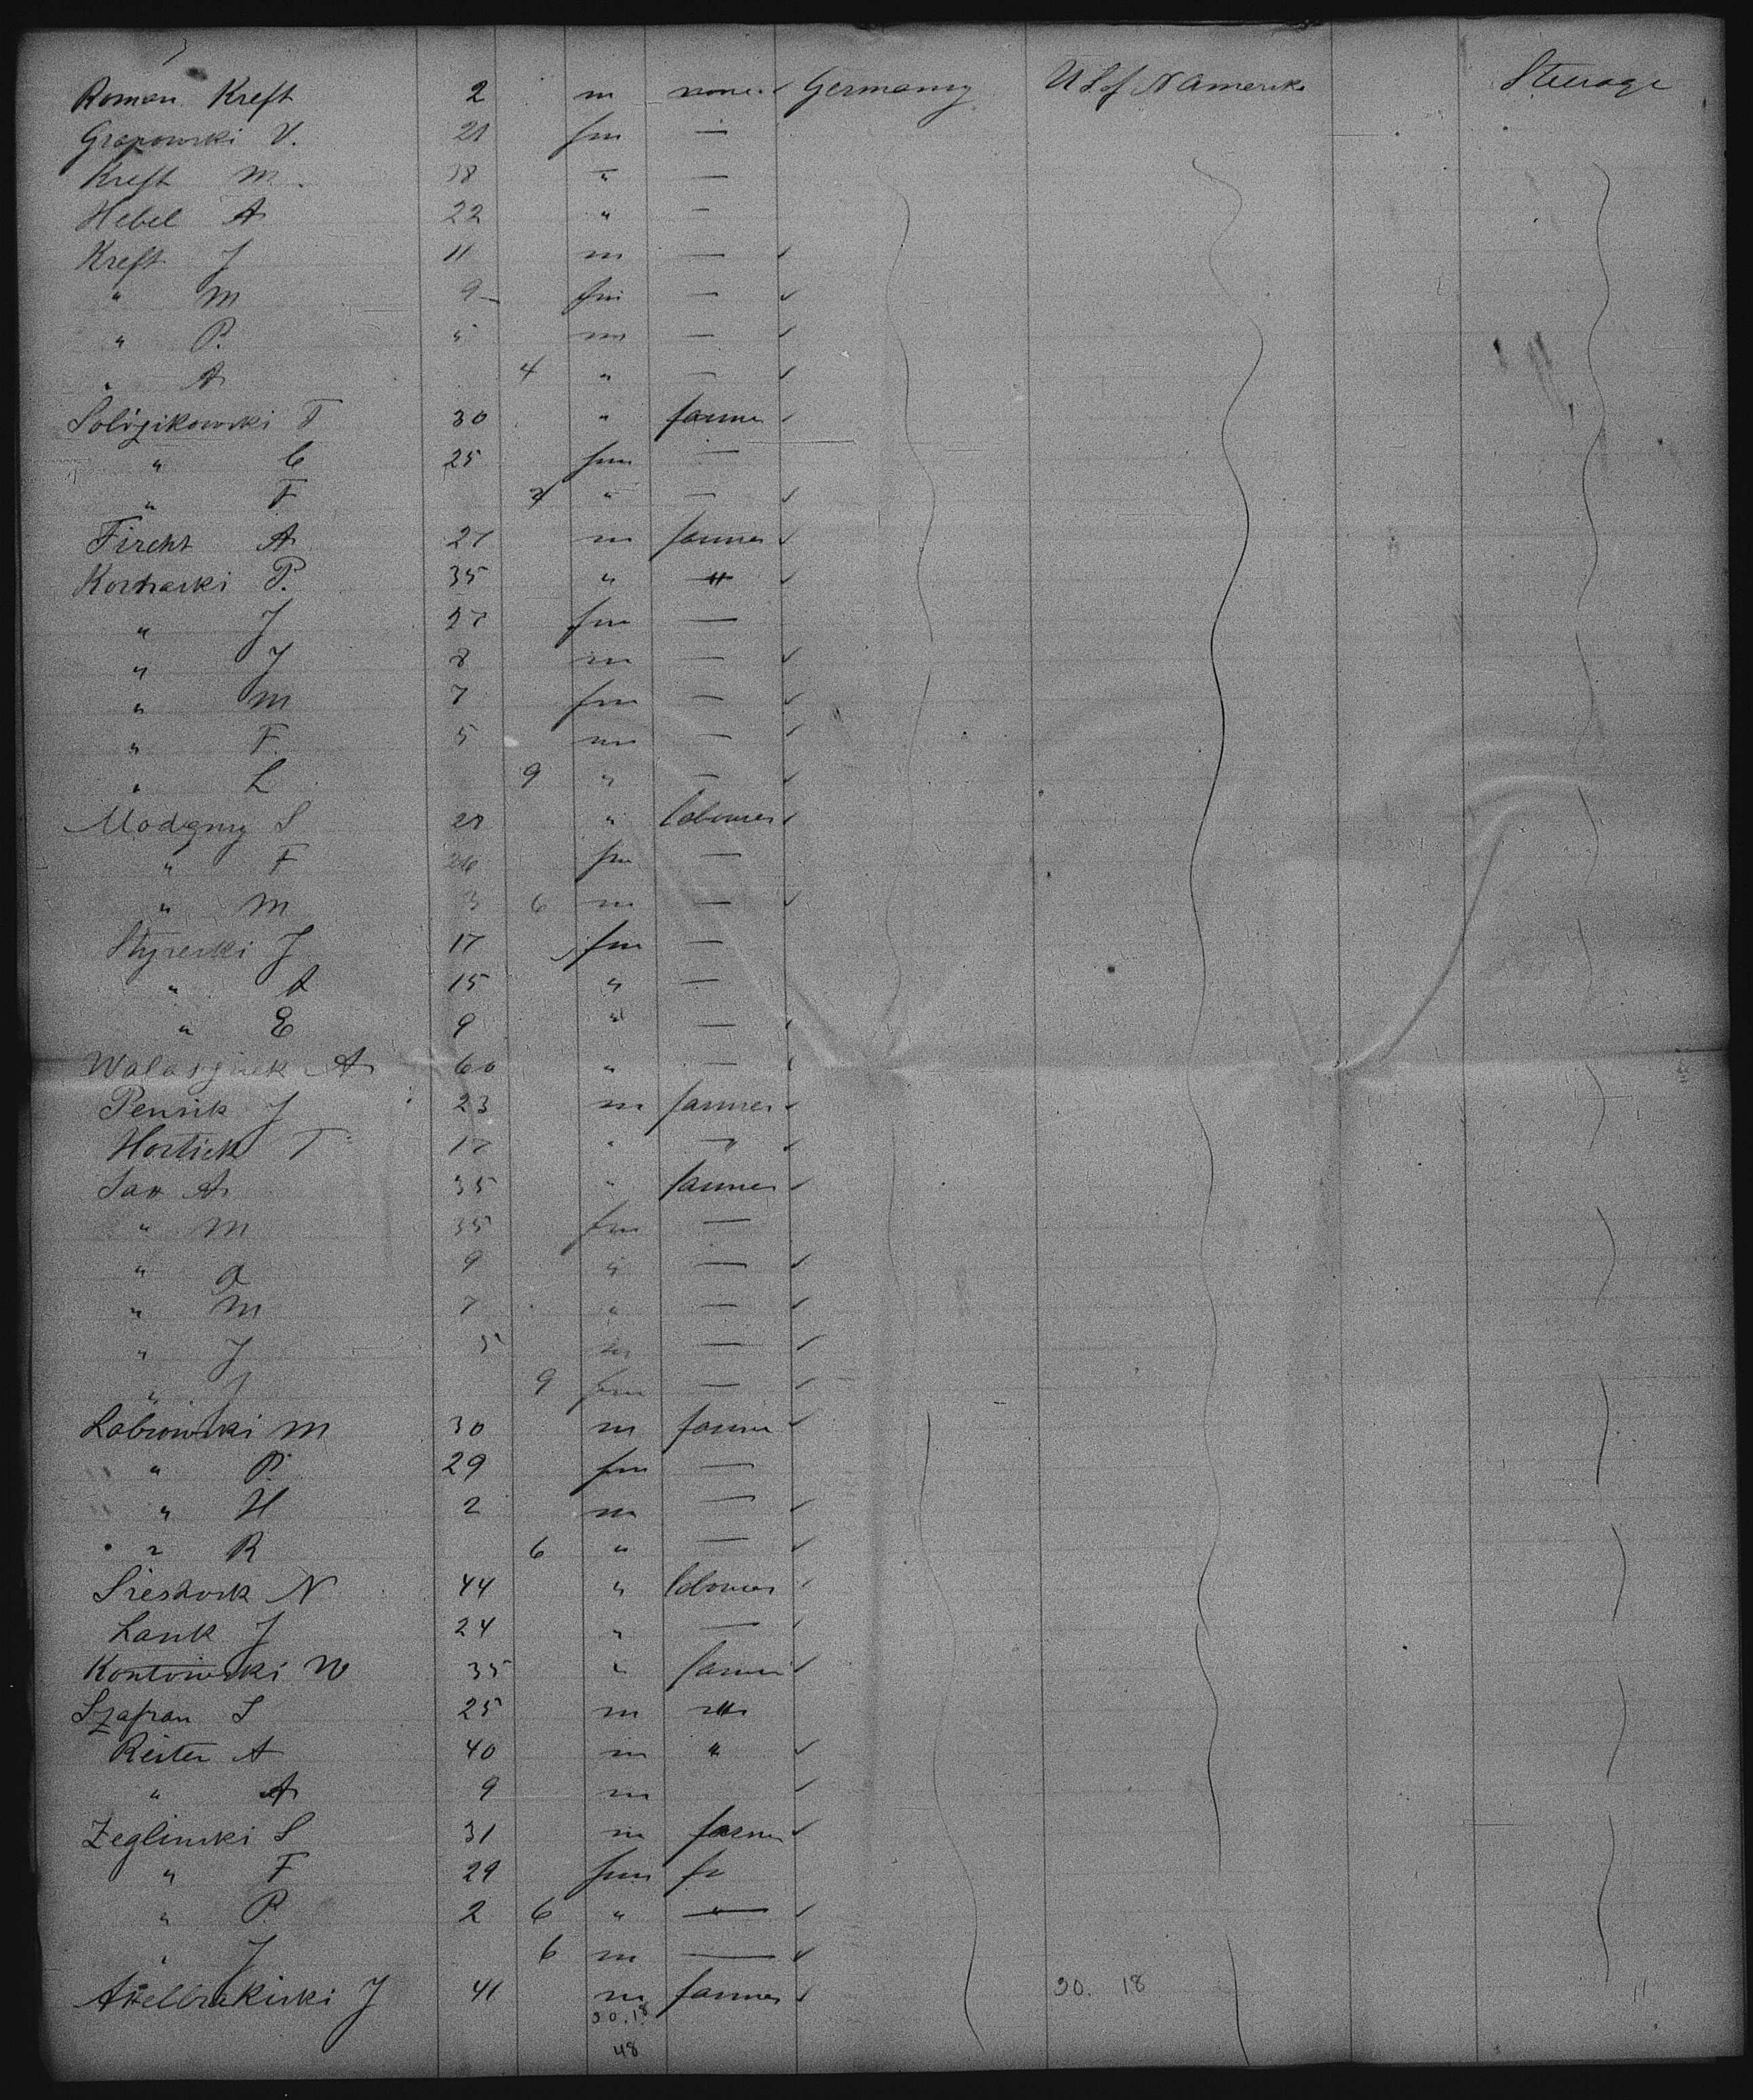 Roman Kreft 2 m none ✓ Germany U S of N Amerika Steerage
Grapowski V. 21 fm —
Kreft M. 38 " —
Hebel A 22 " —
Kreft J 11 m — ✓
" M 9 fm — ✓
" P. 5 m — ✓
" A 4 " — ✓
30 " farmer ✓
" C 25 fm —
" F " — ✓
Fircht A 27 m farmer ✓
P. 35 " " ✓
" J 27 fm —
" J 8 m — ✓
" M 7 fm — ✓
" F. 5 m — ✓
" L 9 " — ✓
S 28 " labourer ✓
" F 26 fm —
" M 3 6 m — ✓
J 17 fm —
" A 15 " —
" E 9 " — ✓
A 60 " — ✓
Pensik J 23 m farmer ✓
T 17 " " ✓
A 35 " farmer ✓
" M 35 fm —
" A 9 " — ✓
" M 7 " — ✓
" J 5 m — ✓
" J 9 fm — ✓
Labrowski M 30 m farmer ✓
" P. 29 fm —
" H 2 m — ✓
" R 6 " — ✓
N 44 " labourer ✓
Lank J 24 " — ✓
Kontowski W 35 " farmer ✓
Szafran S 25 m "
Reiter A 40 m " ✓
" A 9 m ✓
Zeglinski S 31 m farmer ✓
" F 29 fm
" P. 2 6 " — ✓
" J 6 m — ✓
J 41 m farmer ✓ 30. 18 11
30.18
48